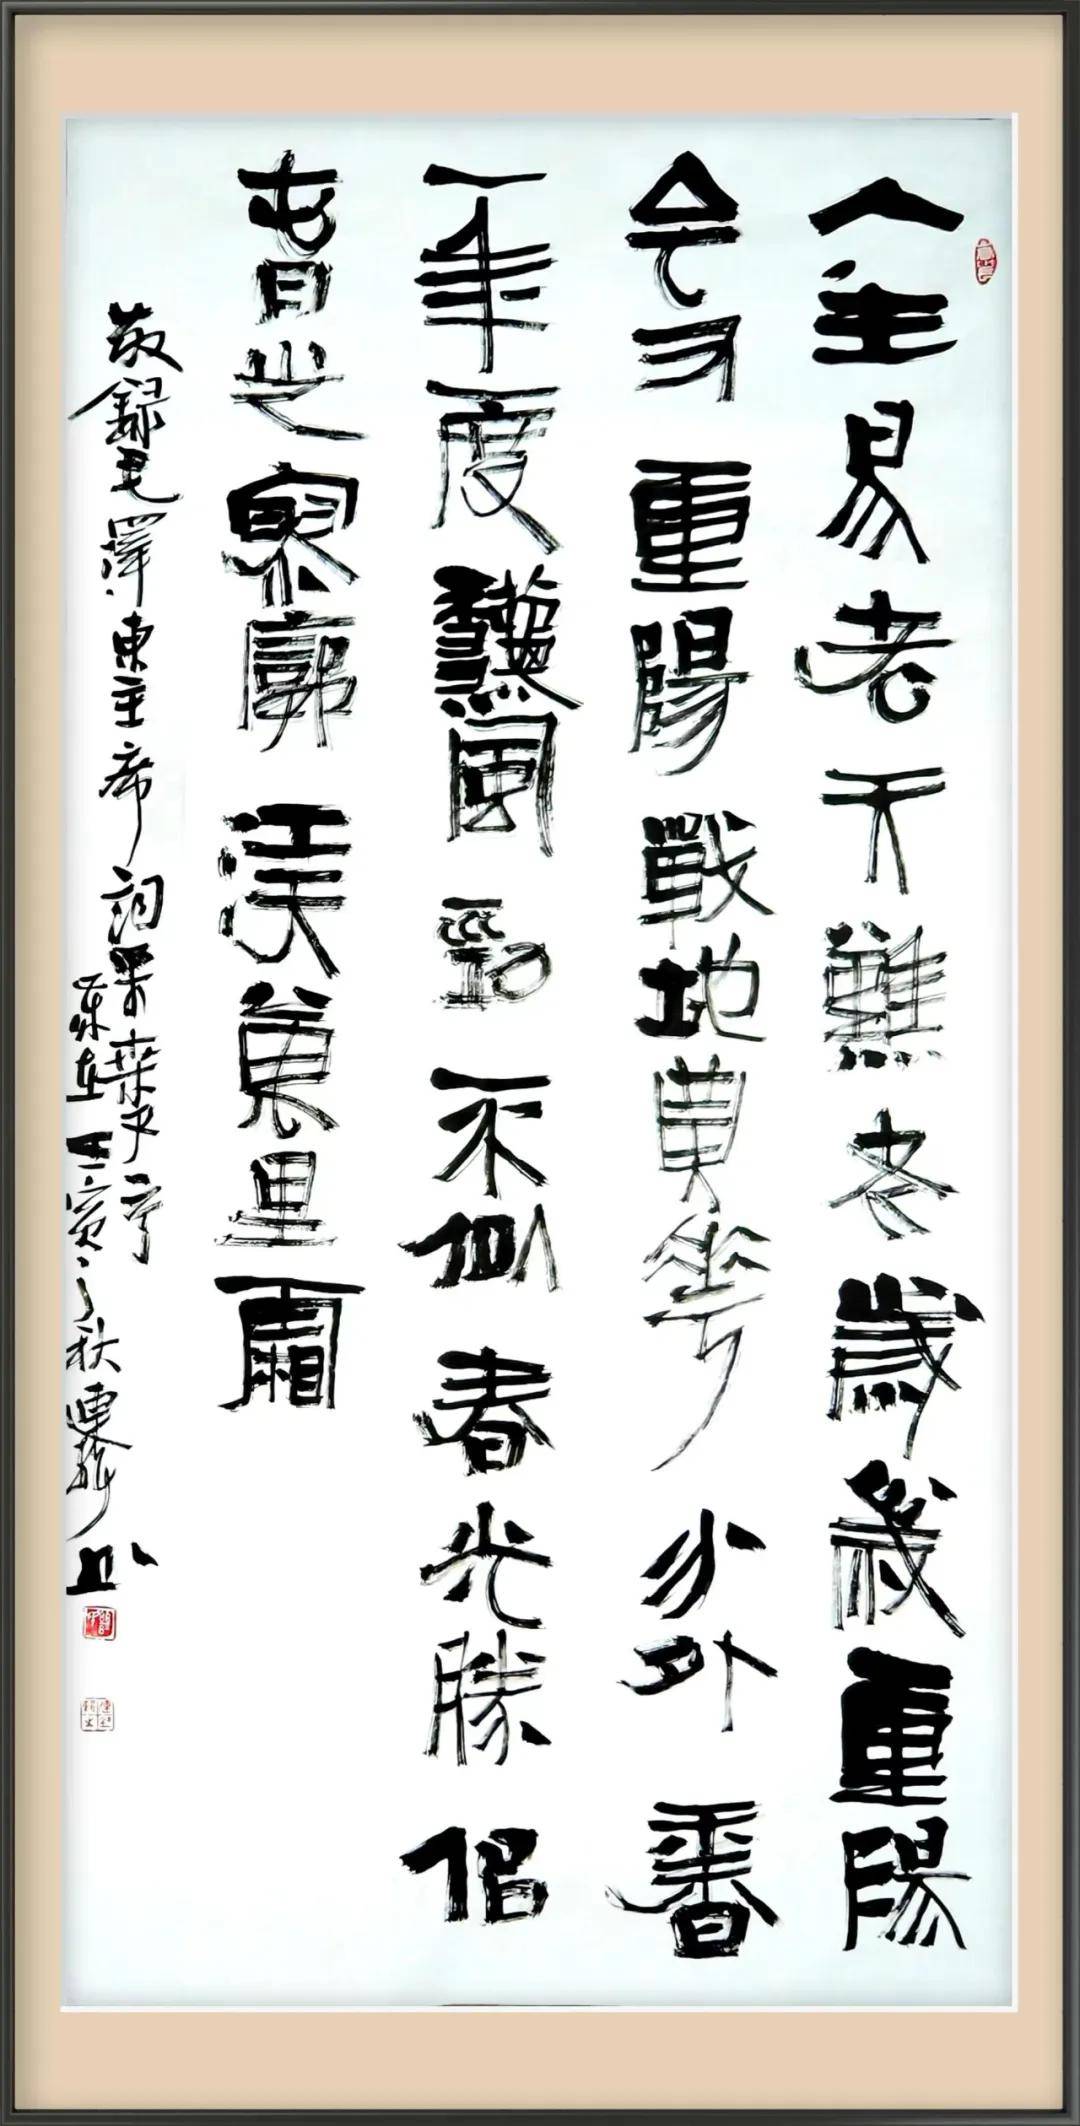 人生易老天難老歲歲重陽
今又重陽戰地黃花分外香
一年一度龝風勁不似春光勝佀
萅光寥廓江天萬里霜
敬錄毛澤東主席詞采桑子
歲在壬寅之秋連